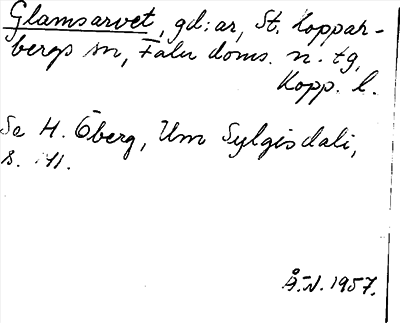 Glamsarvet, gd:ar, St. Koppar-
bergs sn, Falu doms. n. tg,
Kopp. l.
Se H. Öberg, Um Sylgisdali,
s. 41.
Å.N. 1957.